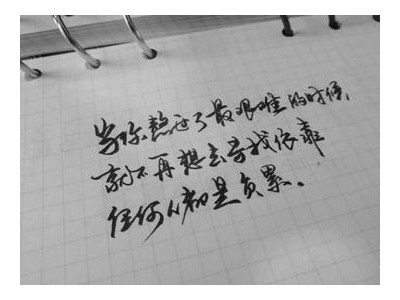 当你熬过了最艰难的时候,
就不再想去寻找依靠
任何人都是负累、